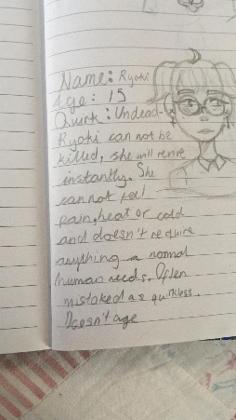 Name: Ryoki
Age: 15
Quirk: Undead-
Ryoki can not be
killed, she will revive
instantly. She
cannot feel
pain, heat or cold
and doesn't require
anything a normal
human needs. Often
mistaked as quirkless.
Doesn't age